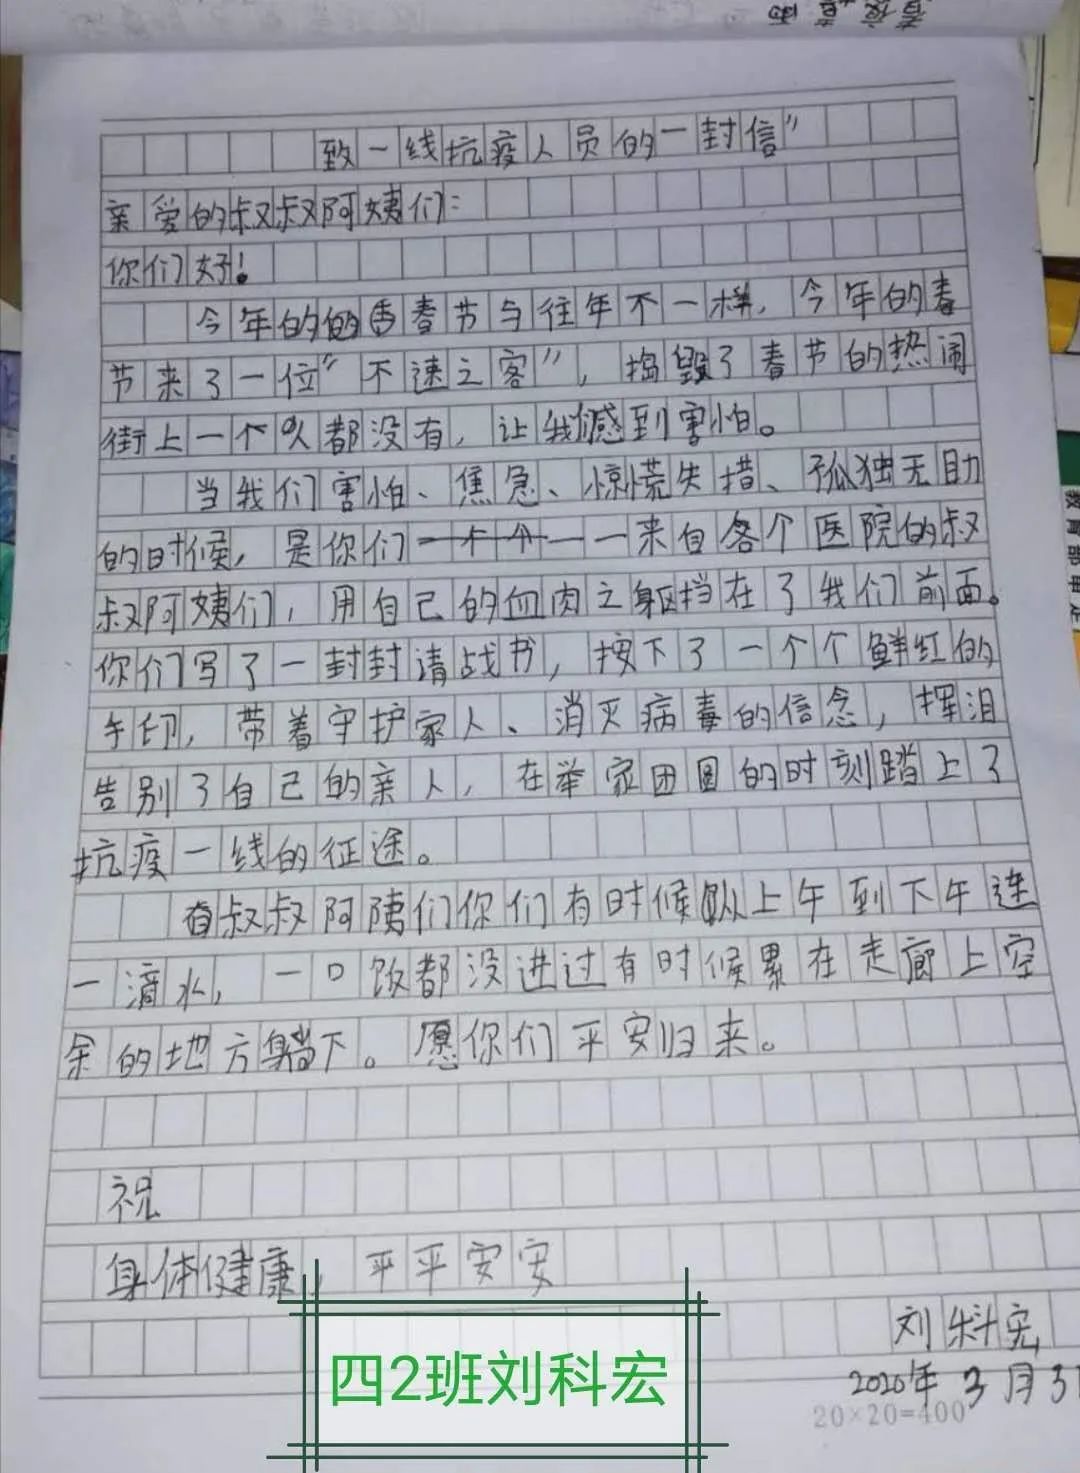 致一线抗疫人员的一封信”
亲爱的叔叔阿姨们：
你们好！
今年的的春节与往年不一样，今年的春
节来了一位“不速之客”，捣毁了春节的热闹
街上一个人都没有，让我们感到害怕。
当我们害怕、焦急、惊慌失措、孤独无助
的时候，是你们一个个——来自各个医院的叔
叔阿姨们，用自己的血肉之躯挡在了我们前面。
你们写了一封封请战书，按下了一个个鲜红的
手印，带着守护家人、消灭病毒的信念，挥泪
告别了自己的亲人，在举家团圆的时刻踏上了
抗疫一线的征途。
叔叔阿姨们你们有时候从上午到下午连
一滴水，一口饭都没进过有时候累在走廊上空
余的地方躺下。愿你们平安归来。
祝
身体健康，平平安安
刘科宏
2020年3月3
20×20=400
四2班刘科宏
教育部审定